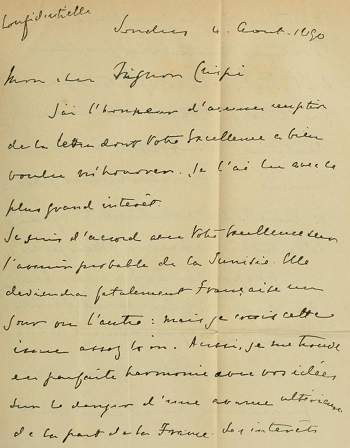 Confidentielle
Londres 4 Aout. 1890
Mon cher Signor Crispi
J'ai l'honneur d'accuser reception
de la lettre dont Votre Excellence a bien
voulu m'honorer. Je l'ai lu avec le
plus grand interêt.
Je suis d'accord avec Votre Excellence sur
l'avenir probable de la Tunisie. Elle
deviendra fatalement Française un
jour ou l'autre: mais je crois cette
issue assez loin. Aussi, je me trouve
en parfaite harmonie avec vos idées
sur le danger d'une avance ultérieure
de la part de la France. Les interets